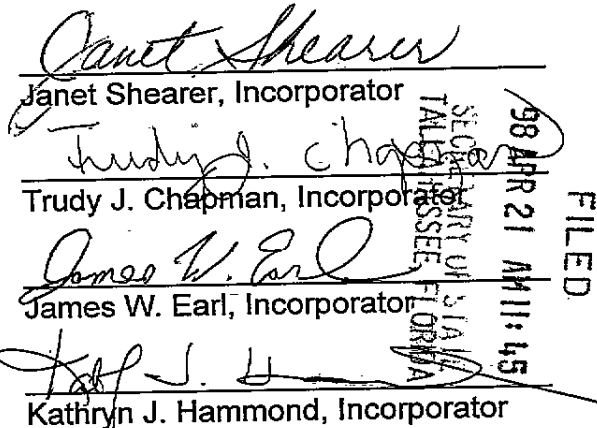 Janet Shearer
Janet Shearer, Incorporator
Trudy J. Chapman
Trudy J. Chapman, Incorporator
James W. Earl
James W. Earl, Incorporator
Kathryn J. Hammond, Incorporator
FILED
98 APR 21 AM 11: 45
SECRETARY OF STATE
TALLAHASSEE, FLORIDA